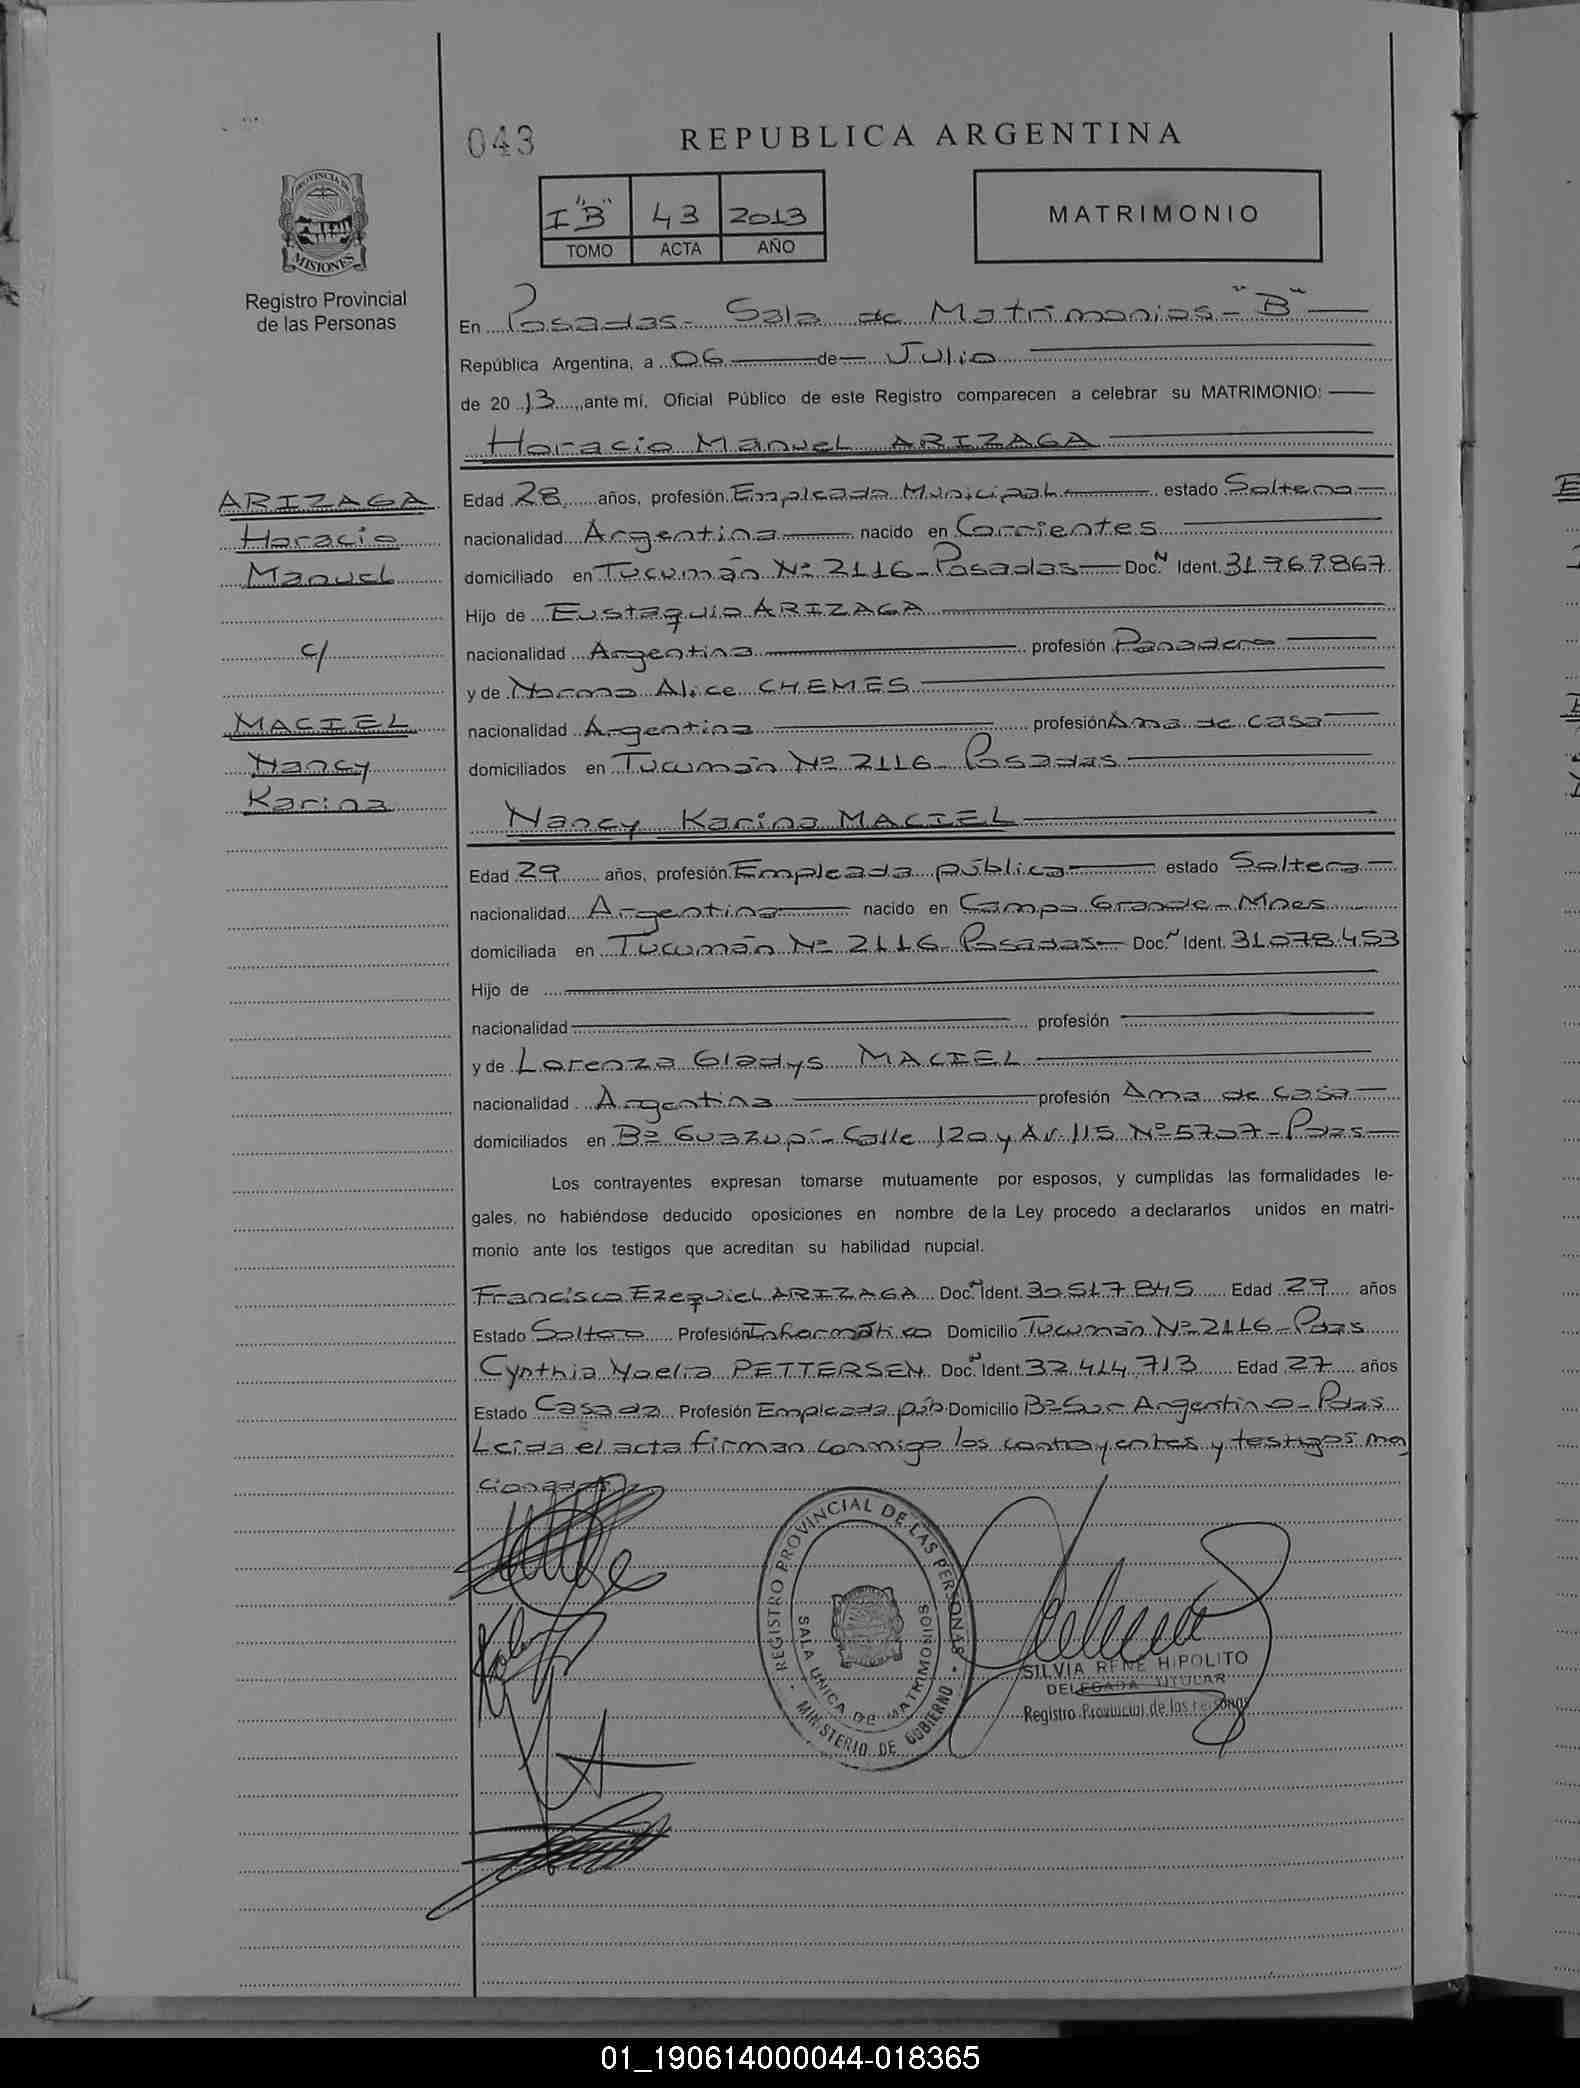 043
REPUBLICA ARGENTINA
I "B" 43 2013
TOMO ACTA AÑO
MATRIMONIO
PROVINCIA DE
MISIONES
Registro Provincial
de las Personas
En Posadas - Sala de Matrimonios - "B"
República Argentina, a 06 de Julio
de 20 13 ante mí, Oficial Público de este Registro comparecen a celebrar su MATRIMONIO:
Horacio Manuel ARIZAGA
ARIZAGA
Horacio
Manuel
c/
MACIEL
Nancy
Karina
Edad 28 años, profesión Empleado Municipal estado Soltero
nacionalidad Argentina nacido en Corrientes
domiciliado en Tucumán Nº 2116 - Posadas Doc. N Ident. 31.769.867
Hijo de Eustaquio ARIZAGA
nacionalidad Argentina profesión Panadero
y de Norma Alice CHEMES
nacionalidad Argentina profesión Ama de casa
domiciliados en Tucumán Nº 2116 - Posadas
Nancy Karina MACIEL
Edad 29 años, profesión Empleada pública estado Soltera
nacionalidad Argentina nacido en Campo Grande - Mnes
domiciliada en Tucumán Nº 2116 - Posadas Doc. N Ident. 31.078.453
Hijo de
nacionalidad profesión
y de Lorenza Gladys MACIEL
nacionalidad Argentina profesión Ama de casa
domiciliados en Bº Guazupí - Calle 120 y Av. 115 Nº 5707 - Pdas
Los contrayentes expresan tomarse mutuamente por esposos, y cumplidas las formalidades le-
gales, no habiéndose deducido oposiciones en nombre de la Ley procedo a declararlos unidos en matri-
monio ante los testigos que acreditan su habilidad nupcial.
Francisco Ezequiel ARIZAGA Doc. N Ident. 30.517.845 Edad 29 años
Estado Soltero Profesión Informático Domicilio Tucumán Nº 2116 - Pdas
Cynthia Noelia PETTERSEN Doc. N Ident. 32.414.713 Edad 27 años
Estado Casada Profesión Empleada púb. Domicilio Bº Sur Argentino - Pdas
Leída el acta firman conmigo los contrayentes y testigos men
cionados
REGISTRO PROVINCIAL DE LAS PERSONAS
SALA UNICA DE MATRIMONIOS
MINISTERIO DE GOBIERNO
SILVIA RENE HIPOLITO
DELEGADA TITULAR
Registro Provincial de las Personas
01_190614000044-018365